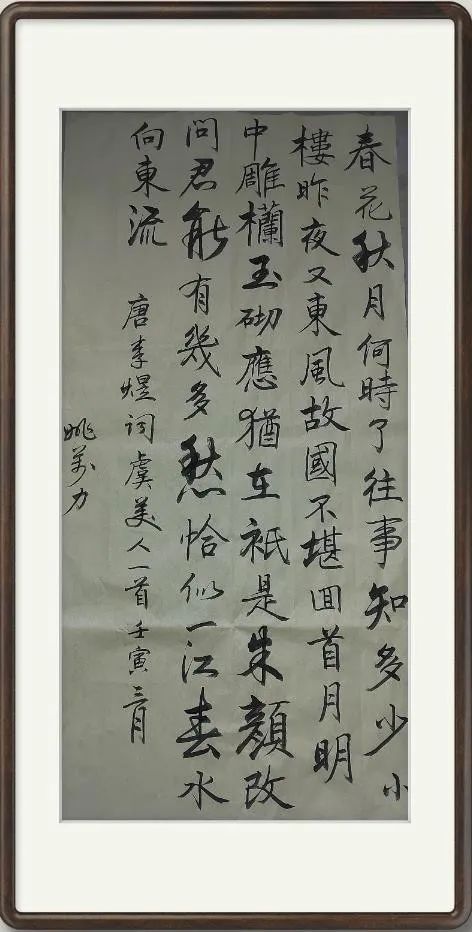 春花秋月何時了往事知多少小
樓昨夜又東風故國不堪回首月明
中雕欄玉砌應猶在祇是朱顏改
問君能有幾多愁恰似一江春水
向東流
唐李煜詞虞美人一首壬寅三月
姚萬力